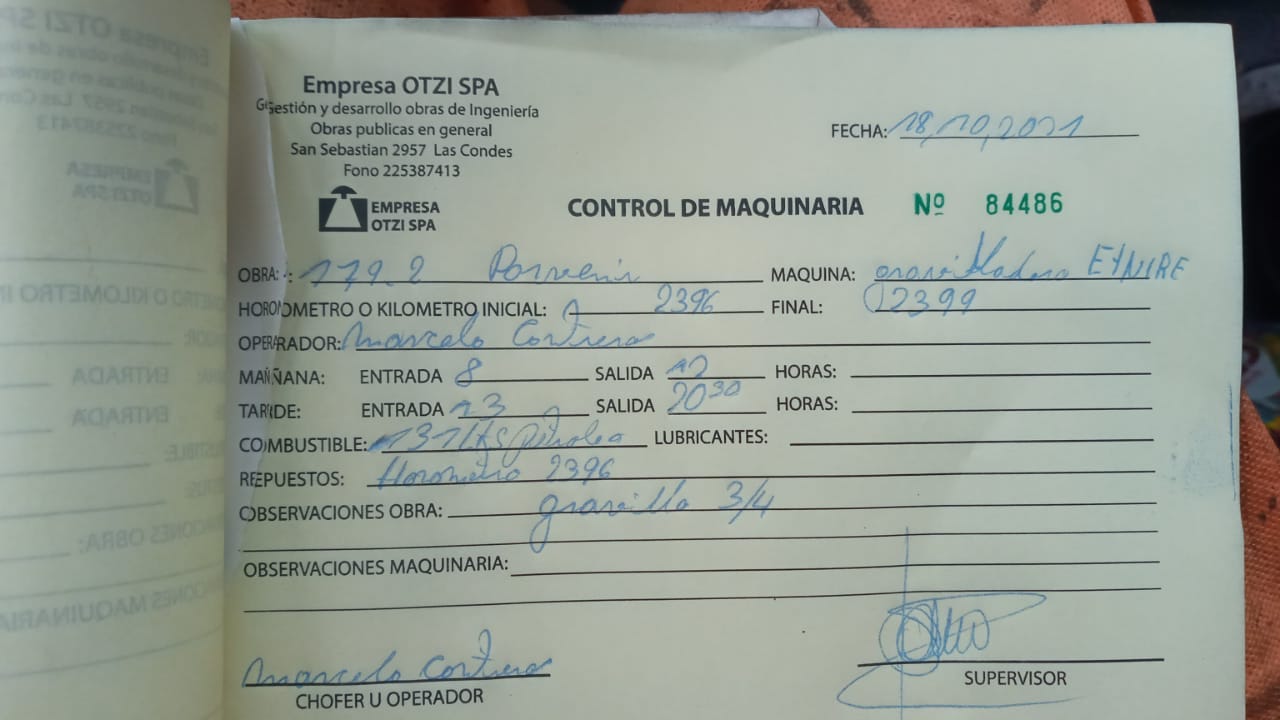 Empresa OTZI SPA
Gestión y desarrollo obras de Ingeniería
Obras publicas en general
San Sebastian 2957 Las Condes
Fono 225387413
EMPRESA
OTZI SPA
FECHA: 18,10,2021
CONTROL DE MAQUINARIA Nº 84486
OBRA: 179.2 Porvenir MAQUINA: gravilladora ETNIRE
HOROMETRO O KILOMETRO INICIAL: 2396 FINAL: 2399
OPERADOR: Marcelo Contrera
MAÑANA: ENTRADA 8 SALIDA 12 HORAS:
TARDE: ENTRADA 13 SALIDA 20 30 HORAS:
COMBUSTIBLE: 131 Lts Petroleo LUBRICANTES:
REPUESTOS: Horometro 2396
OBSERVACIONES OBRA: gravilla 3/4
OBSERVACIONES MAQUINARIA:
Marcelo Contrera
CHOFER U OPERADOR
SUPERVISOR